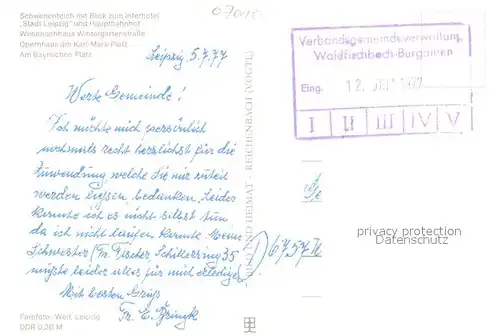 Schwanenteich mit Blick zum Interhotel
„Stadt Leipzig" und Hauptbahnhof
Wohnhochhaus Wintergartenstraße
Opernhaus am Karl-Marx-Platz
Am Bayrischen Platz
Leipzig 5.7.77
Werte Gemeinde!
Ich möchte mich persönlich
nochmals recht herzlichst für die
Zuwendung, welche Sie mir zuteil
werden ließen, bedanken. Leider
konnte ich es nicht selbst tun
da ich nicht laufen konnte. Meine
Schwester (Fr. Fischer Schillerring 35
mußte leider alles für mich erledigen
Mit besten Gruß
Fr. E.
Farbfoto: Weif, Leipzig
DDR 0,20 M
BILD UND HEIMAT · REICHENBACH (VOGTL)
Verbandsgemeindeverwaltung
Waldfischbach-Burgalben
Eing. 12.
I II III IV V
privacy protection
Datenschutz